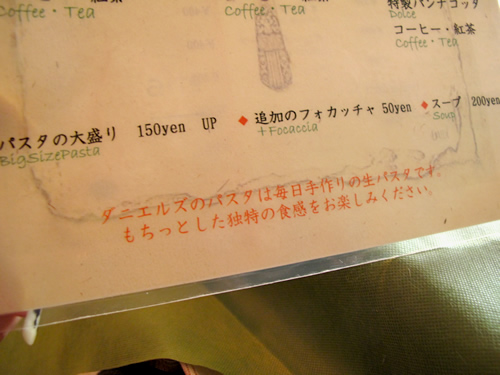 Coffee・Tea
Coffee・Tea
特製パンナコッタ
Dolce
コーヒー・紅茶
Coffee・Tea
パスタの大盛り 150yen UP
BigSizePasta
◆ 追加のフォカッチャ 50yen
＋Focaccia
◆ スープ 200yen
Soup
ダニエルズのパスタは毎日手作りの生パスタです。
もちっとした独特の食感をお楽しみください。